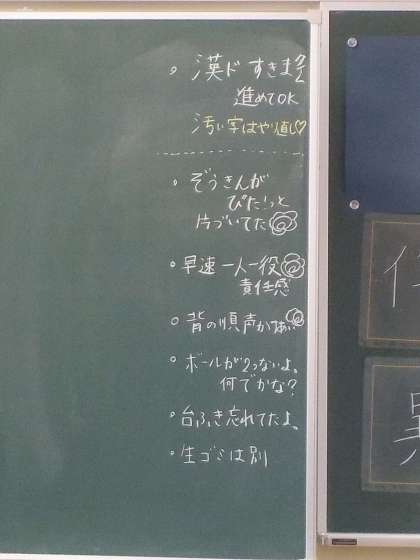 。漢ド すきま
進めてOK
汚い字はやり直し♡
。ぞうきんが
ぴたーっと
片づいてた
。早速一人一役
責任感
。背の順声かけ
。ボールが2つないよ。
何でかな?
。台ふき忘れてたよ。
。生ゴミは別